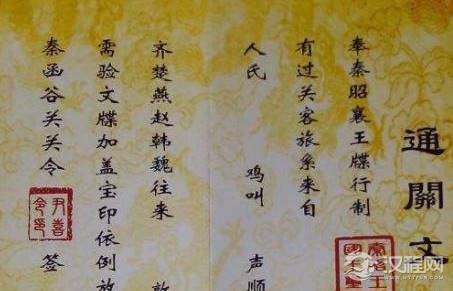 通關文
奉秦昭襄王牒行制
有过关客旅系来自
人民 鸡叫 声顺
齐楚燕赵韩魏往来
需验文牒加盖宝印依例放
秦函谷关关令 签
尹喜
汉程网